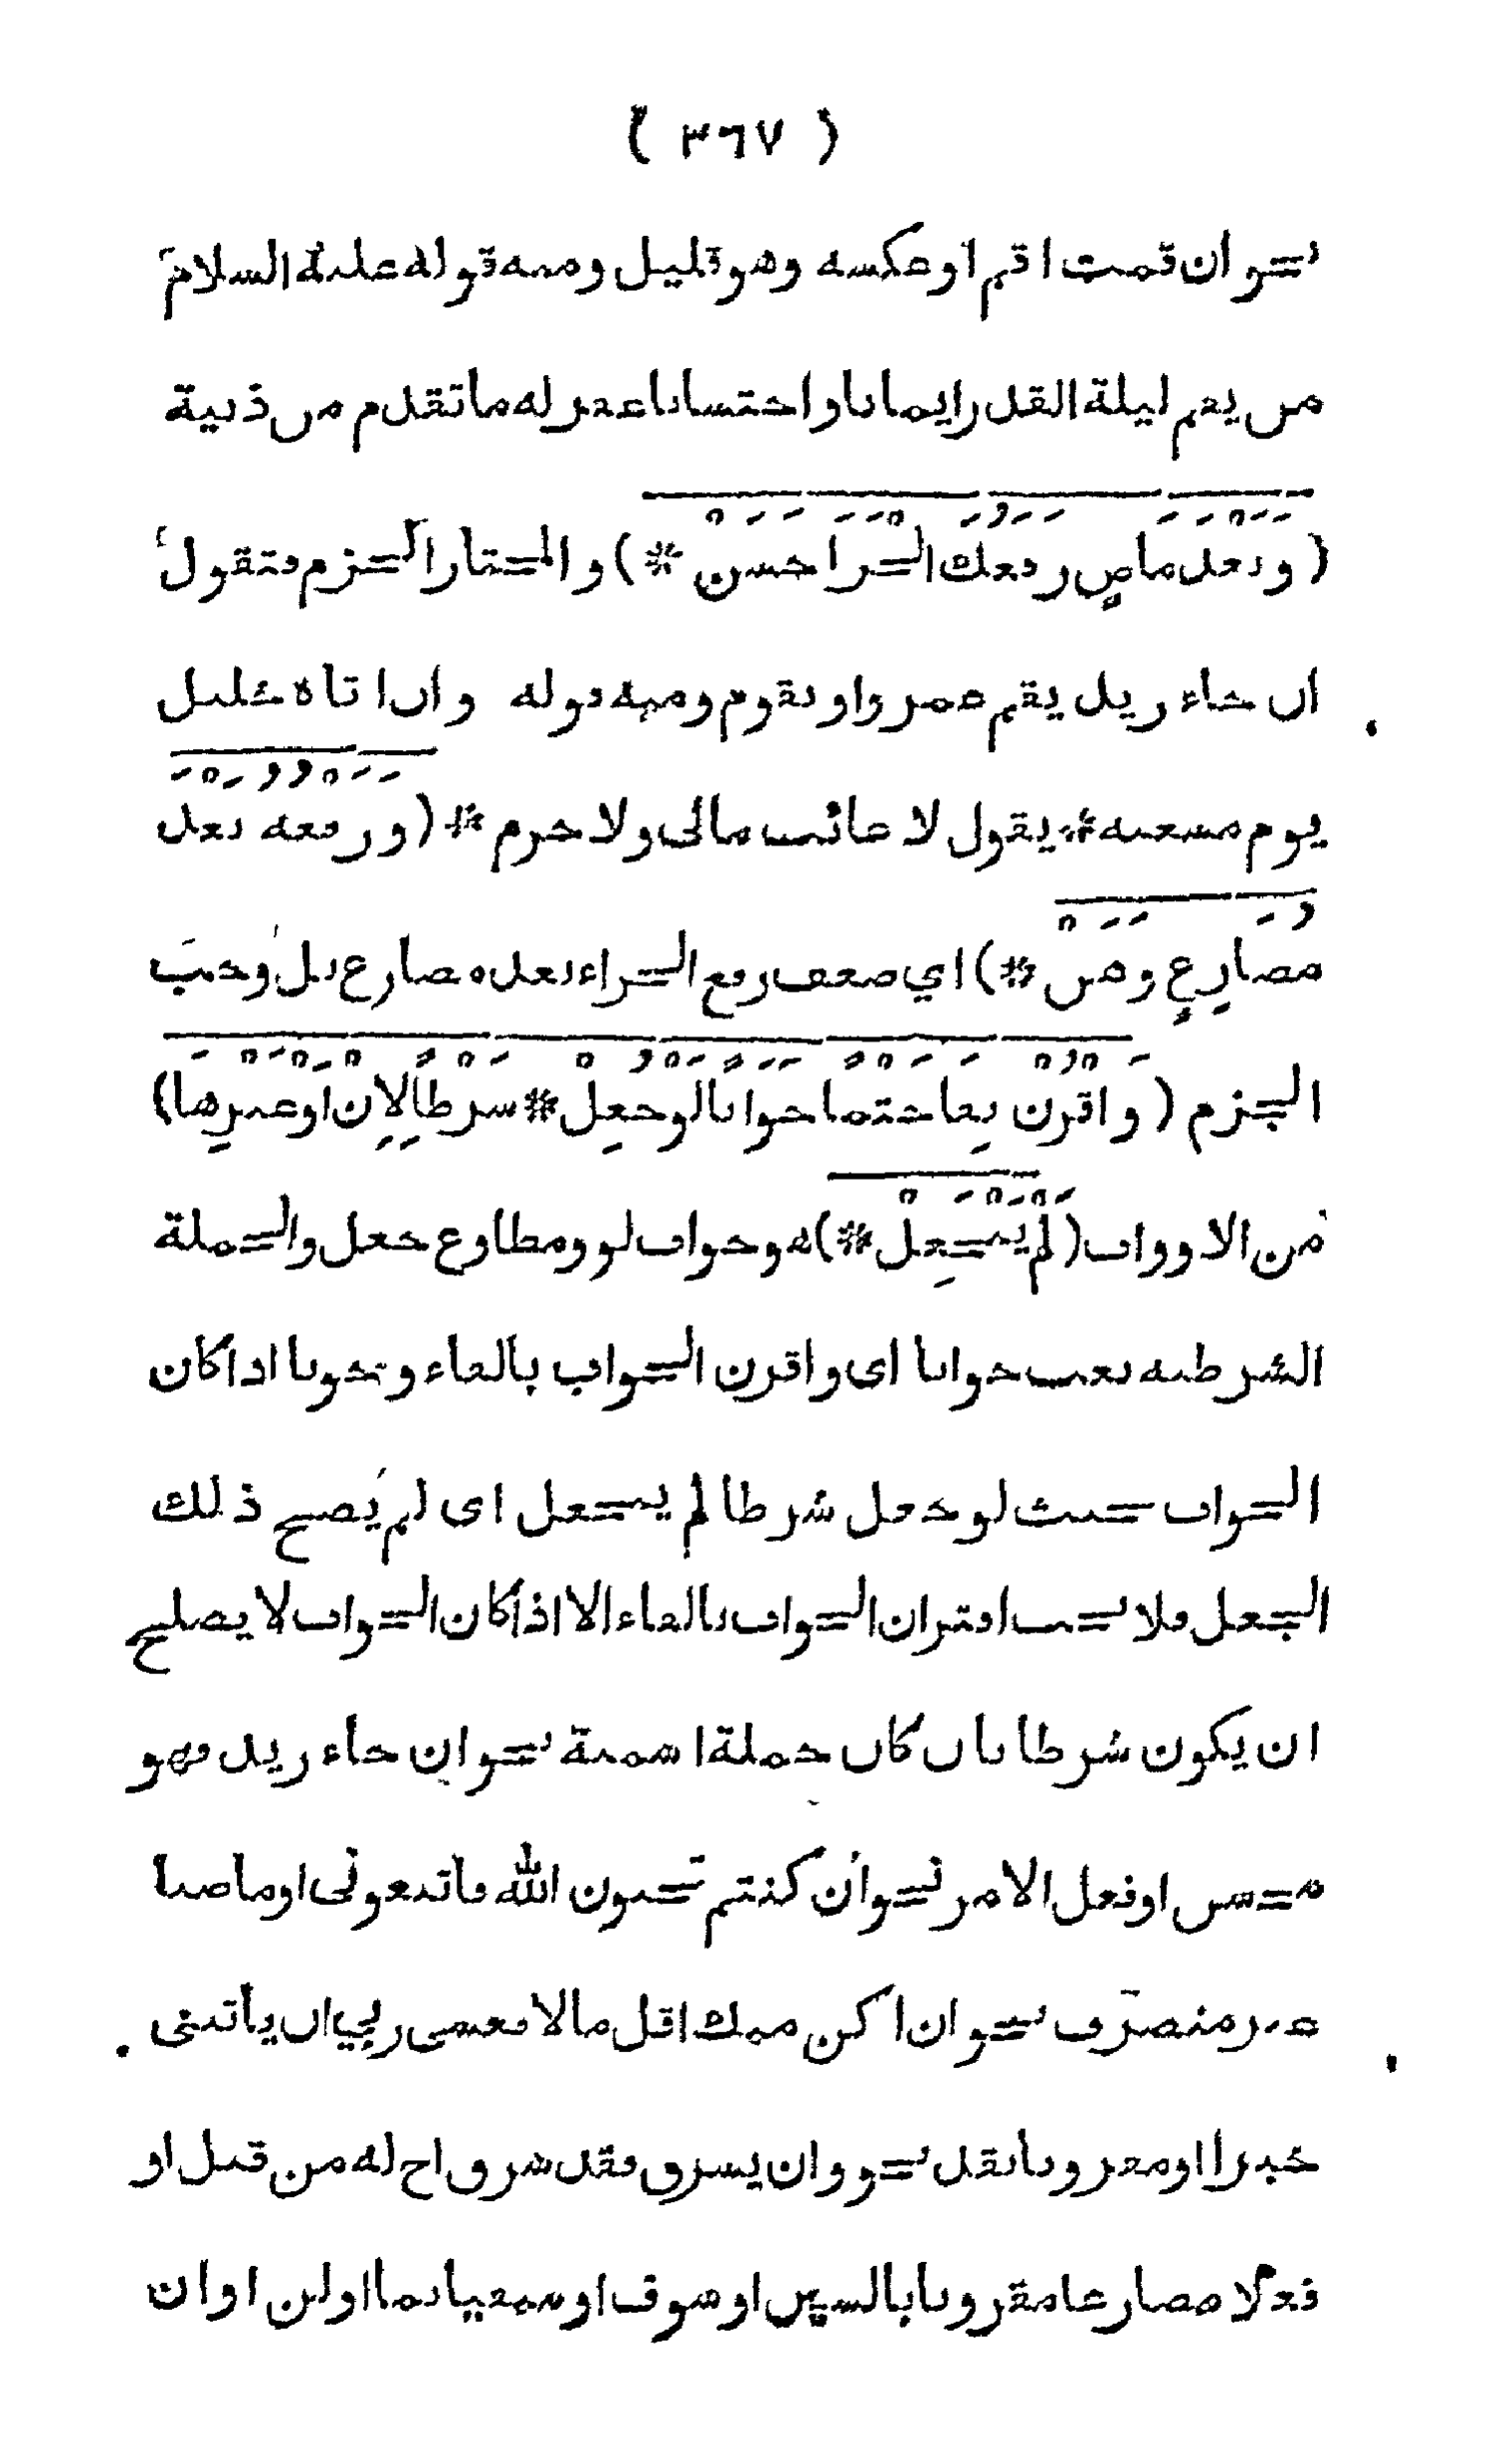 ( ٣٦٧ )
نحو ان قمت اقم او عكسه وهو قليل ومنه قوله عليه السلام
من يقم ليلة القدر ايمانا واحتسابا غفر له ما تقدم من ذنبه
( وَبَعْدَ مَاضٍ رَفْعُكَ الْجَزَا حَسَنْ * ) والمختار الجزم فتقول
ان جاء زيد يقم عمرو او يقوم ومنه قوله وان اتاه خليل
يوم مسغبه * يقول لا غائب مالى ولا حرم * ( وَرَفْعُهُ بَعْدَ
مُضَارِعٍ وَهَنْ * ) اي ضعف رفع الجزاء بعده مضارع بل وجب
الجزم ( وَاقْرُنْ بِفَا حَتْمًا جَوَابًا لَوْ جُعِلْ * شَرْطًا لِإِنْ أَوْ غَيْرِهَا )
من الادوات ( لَمْ يَنْجَعِلْ * ) هو جواب لو ومطاوع جعل والجملة
الشرطيه نعت جوابا اى واقرن الجواب بالفاء وجوبا اذا كان
الجواب بحيث لو جعل شرطا لم ينجعل اى لم يصح ذلك
الجعل فلا يجب اقتران الجواب بالفاء الا اذا كان الجواب لا يصلح
ان يكون شرطا بان كان جملة اسمية نحو ان جاء زيد فهو
محسن او فعل الامر نحو ان كنتم تحبون الله فاتبعونى او ماضيا
غير منصرّف نحو ان اكن منك اقل مالا فعسى ربي ان ياتينى
خيرا او مقرونا بقد نحو وان يسرق فقد سرق اخ له من قبل او
فعلا مضارعا مقرونا بالسين او سوف او منفيا بما او لن او ان